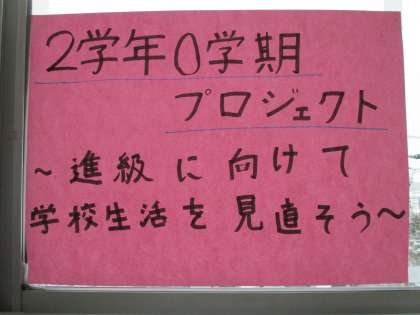 2学年0学期
プロジェクト
～進級に向けて
学校生活を見直そう～